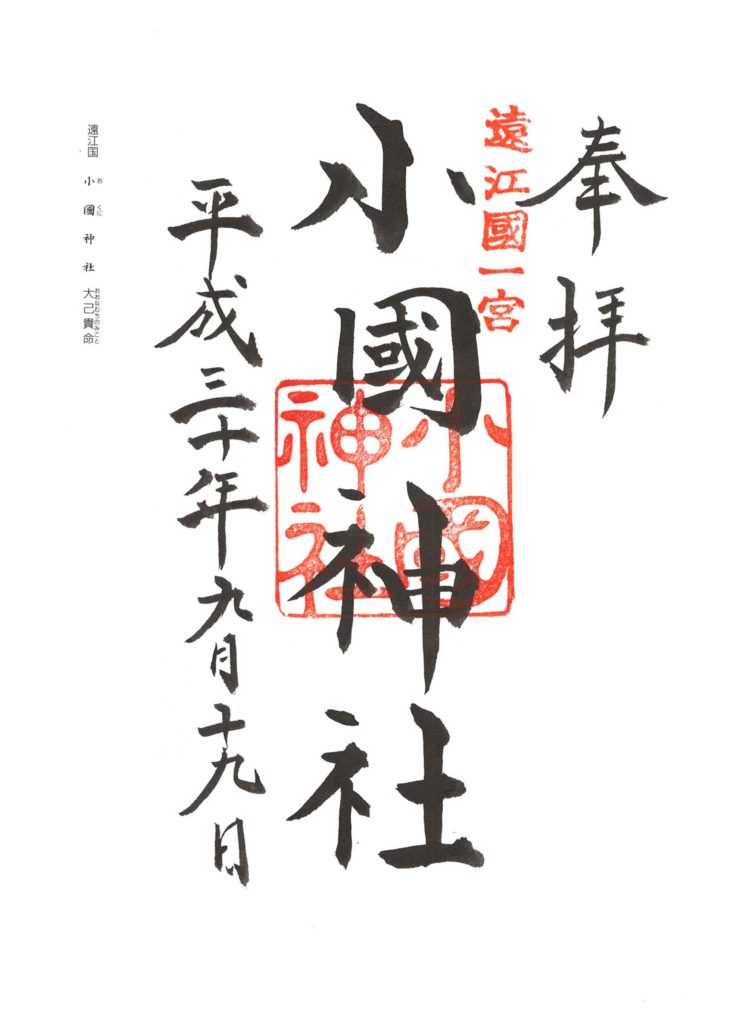 奉拝
遠江國一宮
小國神社
小國神社
平成三十年九月十九日
遠江国 小國神社 大己貴命
お くに
おおなむちのみこと